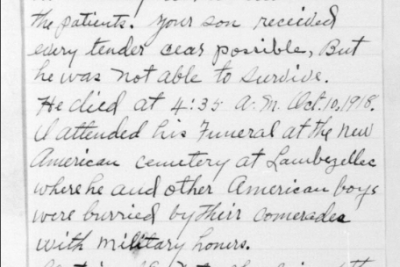 the patients. Your son received
every tender cear possible, But
he was not able to survive.
He died at 4:35 A.M. Oct. 10, 1918.
I attended his Funeral at the New
American cemetery at Lambezellec
where he and other American boys
were burried by thirr comerades
with military honers.